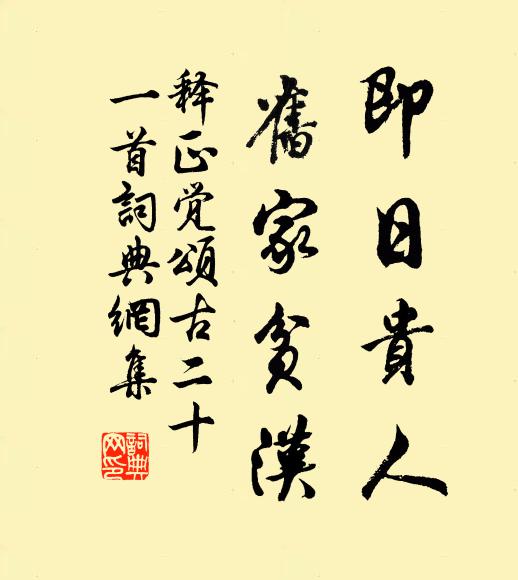 即日貴人
舊家貧漢
释正覺頌古二十
一首詞典網集
詞典网印